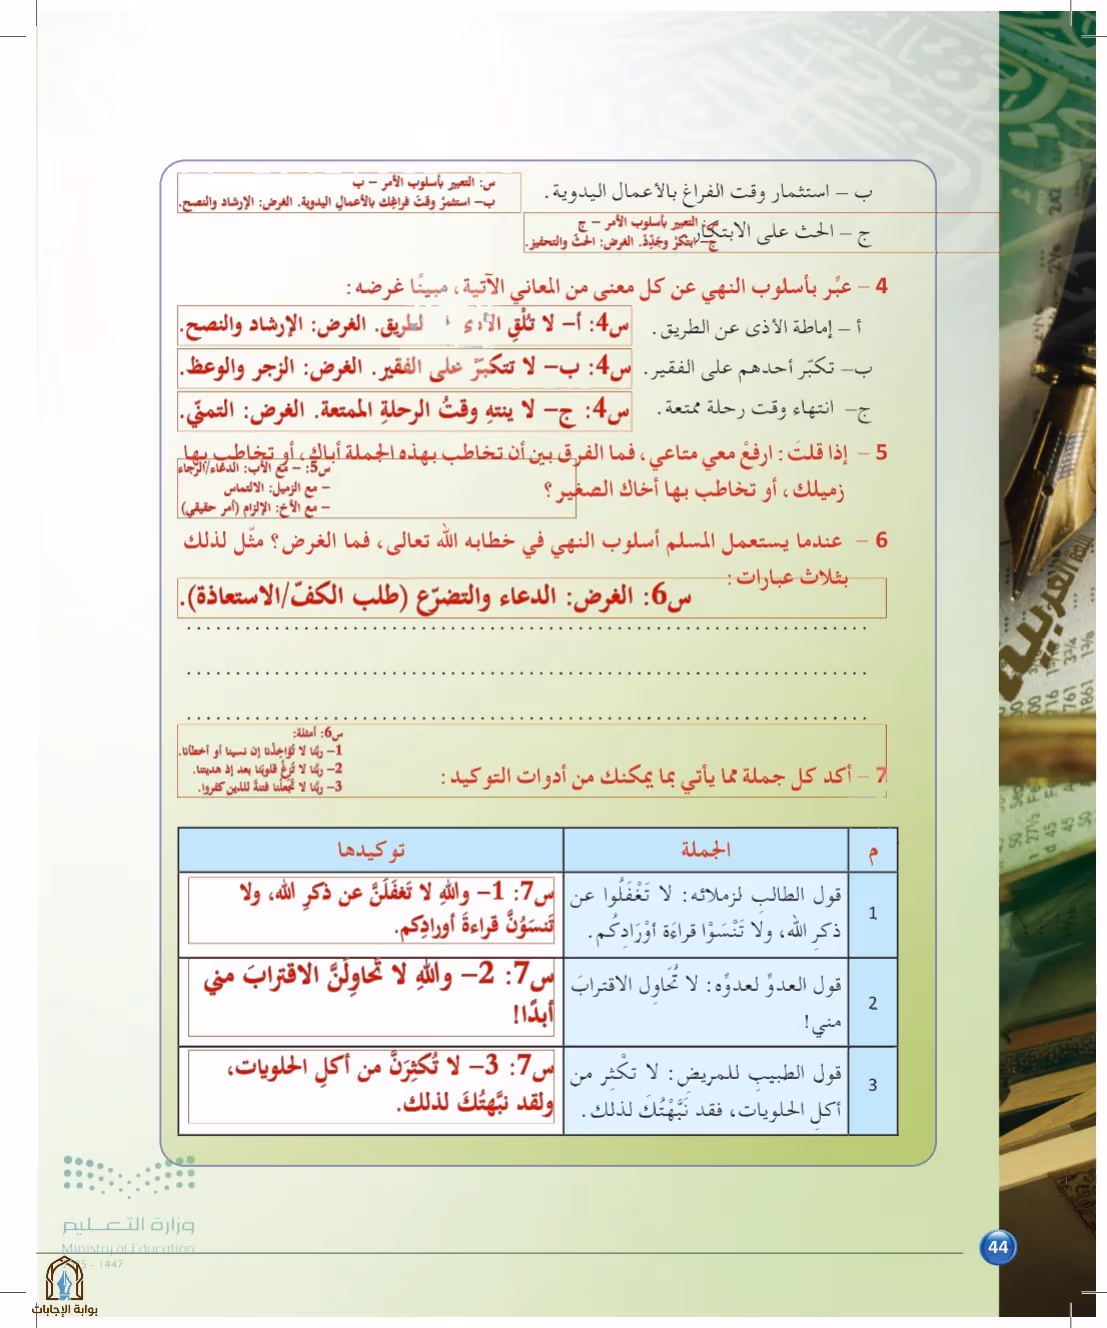 ب – استثمار وقت الفراغ بالأعمال اليدوية.
س: التعبير بأسلوب الأمر – ب
ب– استثمرْ وقتَ فراغِك بالأعمالِ اليدوية. الغرض: الإرشاد والنصح.
ج – الحث على الابتكار.
التعبير بأسلوب الأمر – ج
ج– ابتكرْ وجَدِّدْ. الغرض: الحثّ والتحفيز.
4 – عبِّر بأسلوب النهي عن كل معنى من المعاني الآتية، مبينًا غرضه:
أ – إماطة الأذى عن الطريق.
س4: أ– لا تُلْقِ الأذى لطريق. الغرض: الإرشاد والنصح.
ب– تكبّر أحدهم على الفقير.
س4: ب– لا تتكبّرْ على الفقير. الغرض: الزجر والوعظ.
ج– انتهاء وقت رحلة ممتعة.
س4: ج– لا ينتهِ وقتُ الرحلةِ الممتعة. الغرض: التمنّي.
5 – إذا قلتَ: ارفعْ معي متاعي، فما الفرق بين أن تخاطب بهذه الجملة أباك، أو تخاطب بها
زميلك، أو تخاطب بها أخاك الصغير؟
س5: – مع الأب: الدعاء/الرجاء
– مع الزميل: الالتماس
– مع الأخ: الإلزام (أمر حقيقي)
6 – عندما يستعمل المسلم أسلوب النهي في خطابه الله تعالى، فما الغرض؟ مثّل لذلك
بثلاث عبارات:
س6: الغرض: الدعاء والتضرّع (طلب الكفّ/الاستعاذة).
س6: أمثلة:
1– ربَّنا لا تُؤاخِذْنا إن نسينا أو أخطأنا.
2– ربَّنا لا تُزِغْ قلوبَنا بعد إذ هديتنا.
3– ربَّنا لا تَجْعلْنا فتنةً للذين كفروا.
7 – أكد كل جملة مما يأتي بما يمكنك من أدوات التوكيد:
م الجملة توكيدها
1
قول الطالبِ لزملائه: لا تَغْفَلُوا عن
ذكرِ الله، ولا تَنْسَوْا قراءَة أوْرَادِكُم.
س7: 1– واللهِ لا تَغفَلَنَّ عن ذكرِ الله، ولا
تَنسَوُنَّ قراءةَ أورادِكم.
2
قول العدوِّ لعدوِّه: لا تُحَاوِل الاقترابَ
مني!
س7: 2– واللهِ لا تُحاوِلَنَّ الاقترابَ مني
أبدًا!
3
قول الطبيبِ للمريضِ: لا تكْثِر من
أكلِ الحلويات، فقد نَبَّهْتُكَ لذلك.
س7: 3– لا تُكثِرَنَّ من أكلِ الحلويات،
ولقد نبَّهتُكَ لذلك.
وزارة التعليم
Ministry of Education
- 1447
44
بوابة الإجابات